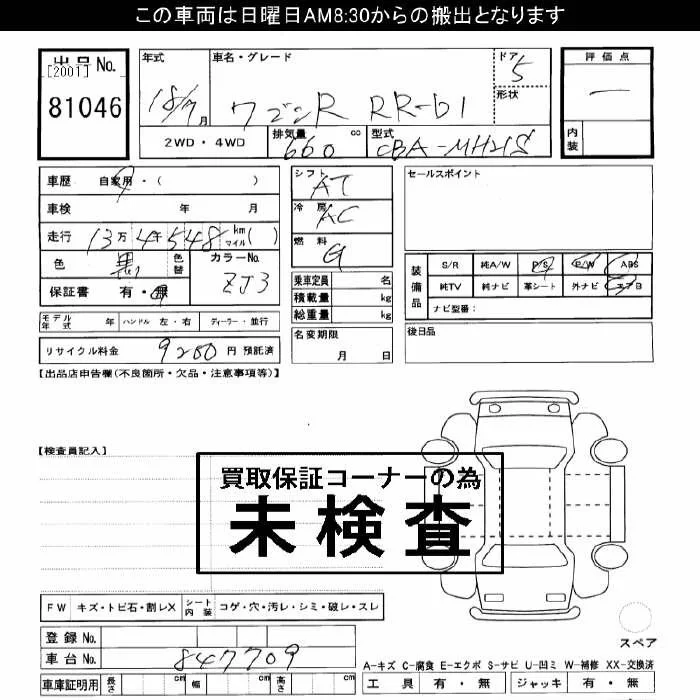 この車両は日曜日AM8:30からの搬出となります
出品No.
[2001]
81046
年式
18/7月
車名・グレード
ワゴンR RR-DI
ドア
5
形状
評価点
―
内装
2WD・4WD
排気量
660 cc
型式
CBA-MH21S
車歴 自家用・( )
車検 年 月
走行 13万4千548 km マイル( )
色 黒 色替
カラーNo.
ZJ3
保証書 有・無
モデル年式 年 ハンドル 左・右 ディーラー・並行
リサイクル料金 9280 円 預託済
シフト
AT
冷房
AC
燃料
G
乗車定員 名
積載量 kg
総重量 kg
名変期限
月 日
セールスポイント
装備品
S/R 純A/W P/S P/W ABS
純TV 純ナビ 革シート 外ナビ エアB
ナビ型番:
後日品
【出品店申告欄(不良箇所・欠品・注意事項等)】
【検査員記入】
買取保証コーナーの為
未検査
FW キズ・トビ石・割レX シート内装 コゲ・穴・汚レ・シミ・破レ・スレ
登録No.
車台No. 847709
車庫証明用 長さ cm 幅 cm 高さ cm
スペア
A-キズ C-腐食 E-エクボ S-サビ U-凹ミ W-補修 XX-交換済
工具 有・無 ジャッキ 有・無